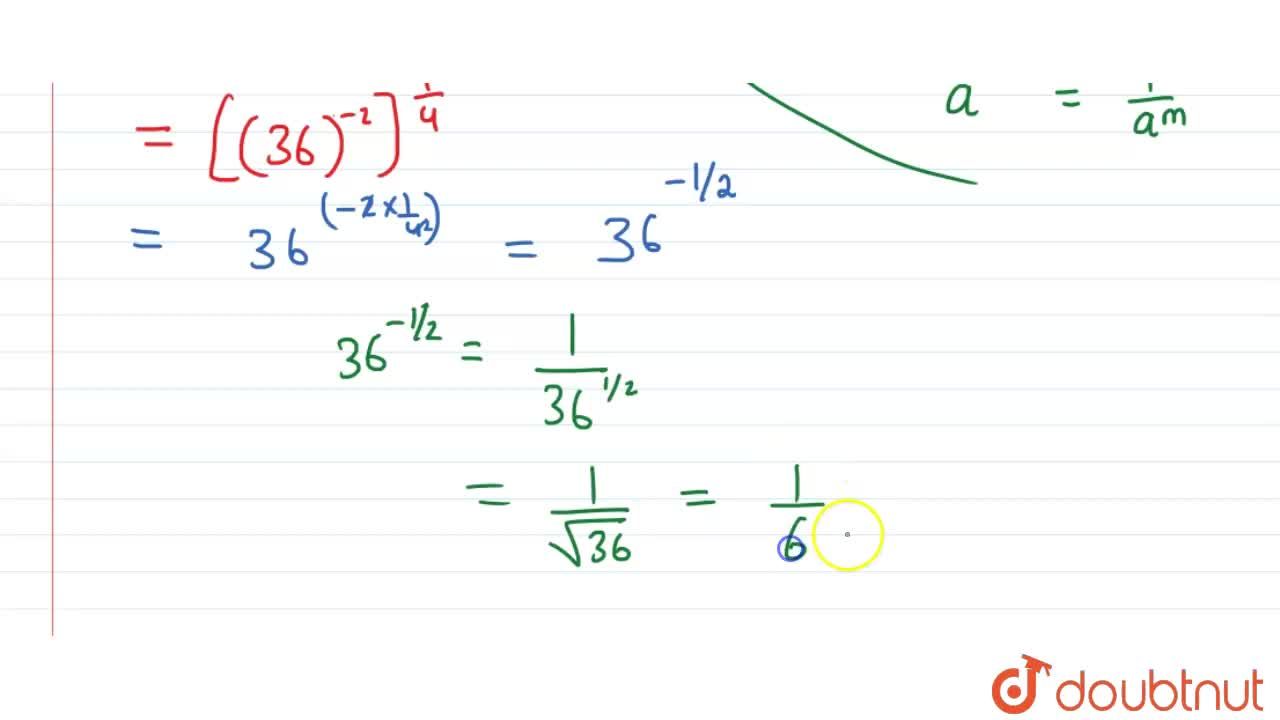 = [(36)^-2]^1/4
a = 1/a^m
= 36^(-2×1/4 2) = 36^-1/2
36^-1/2 = 1/36^1/2
= 1/√36 = 1/6
doubtnut